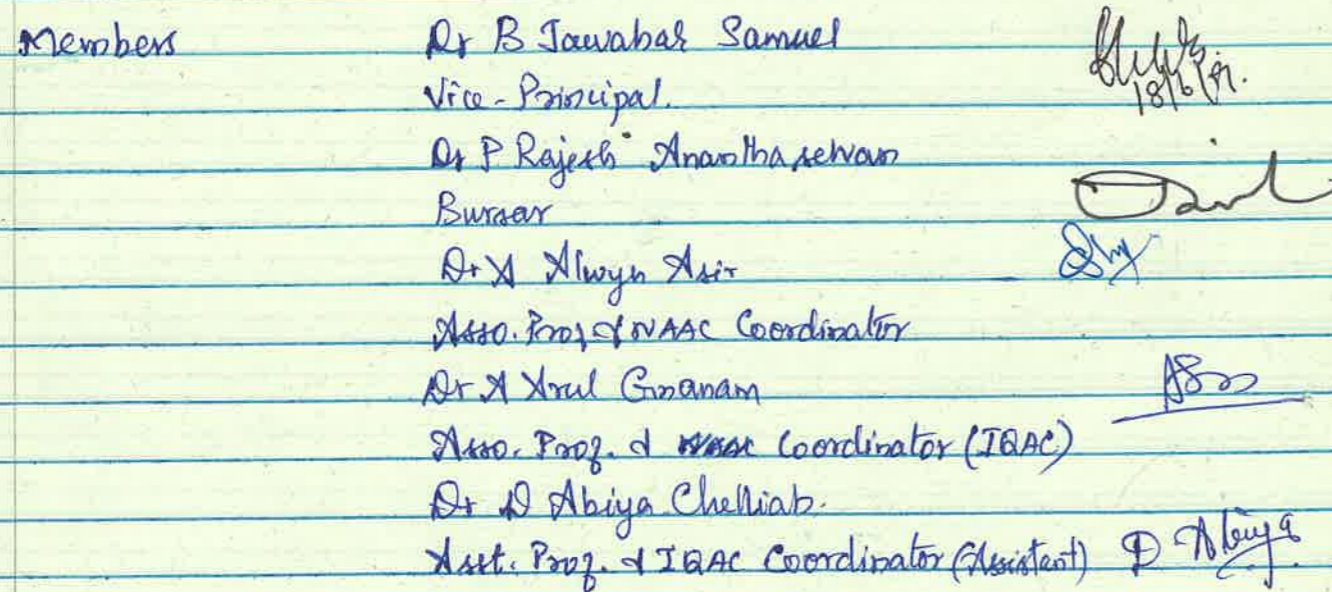 Members Dr B Jawahar Samuel
Vice-Principal.
18/6/
Dr P Rajesh Ananthaselvan
Bursar
Dr A Alwyn Asir
Asso. Prof & NAAC Coordinator
Dr A Arul Gnanam
Asso. Prof. & Coordinator (IQAC)
Dr D Abiya Chelliah.
Asst. Prof. & IQAC Coordinator (Assistant) D Abiya